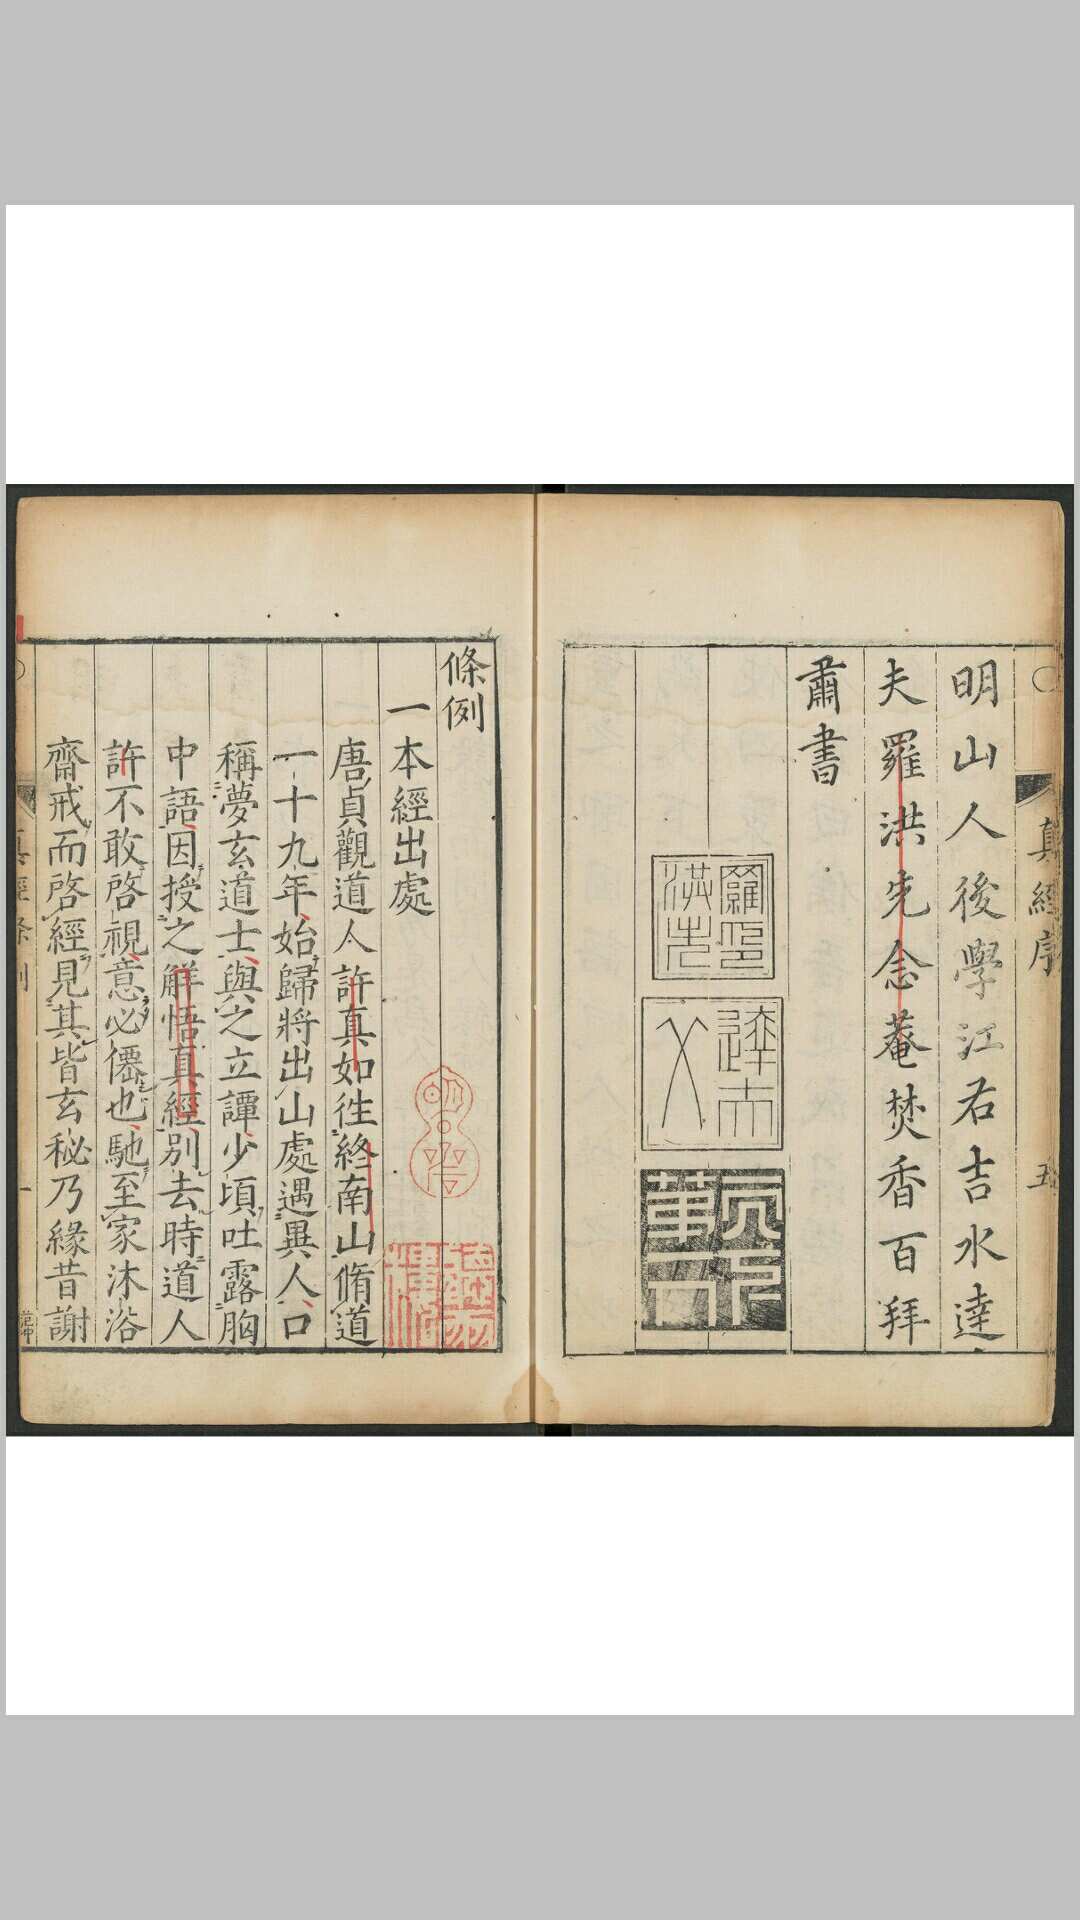 真經序
五
明山人後學江右吉水達
夫羅洪先念菴焚香百拜
肅書
羅洪先印
達夫
條例
一本經出處
唐貞觀道人許真如徃終南山脩道
一十九年始歸將出山處遇異人口
稱夢玄道士與之立譚少頃吐露胸
中語因授之解悟真經別去時道人
許不敢啓視意必僊也馳至家沐浴
齋戒而啓經見其皆玄秘乃緣昔謝
真經條例
一